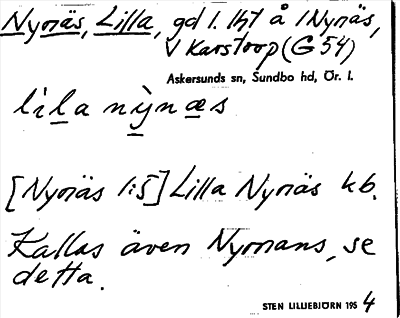 Nynäs, Lilla, gd l. lht å 1 Nynäs,
V Karstorp (G 54)
Askersunds sn, Sundbo hd, Ör. l.
lìla nỳnæs
[Nynäs 1:5] Lilla Nynäs kb.
Kallas även Nymans, se
detta.
STEN LILLIEBJÖRN 195 4